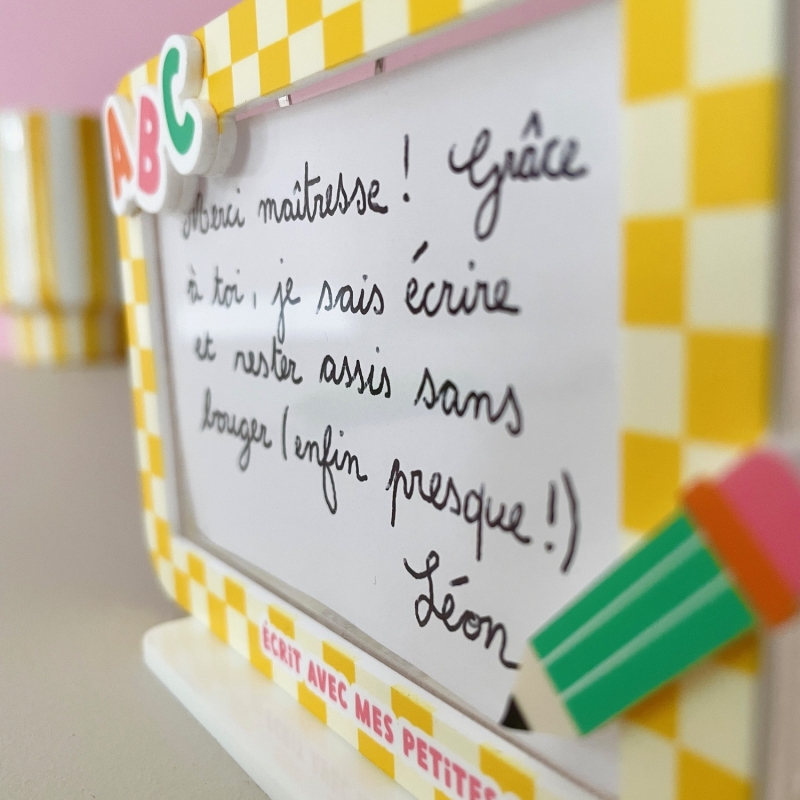 ABC
Merci maîtresse ! Grâce
à toi, je sais écrire
et rester assis sans
bouger (enfin presque !)
Léon
ÉCRIT AVEC MES PETITES